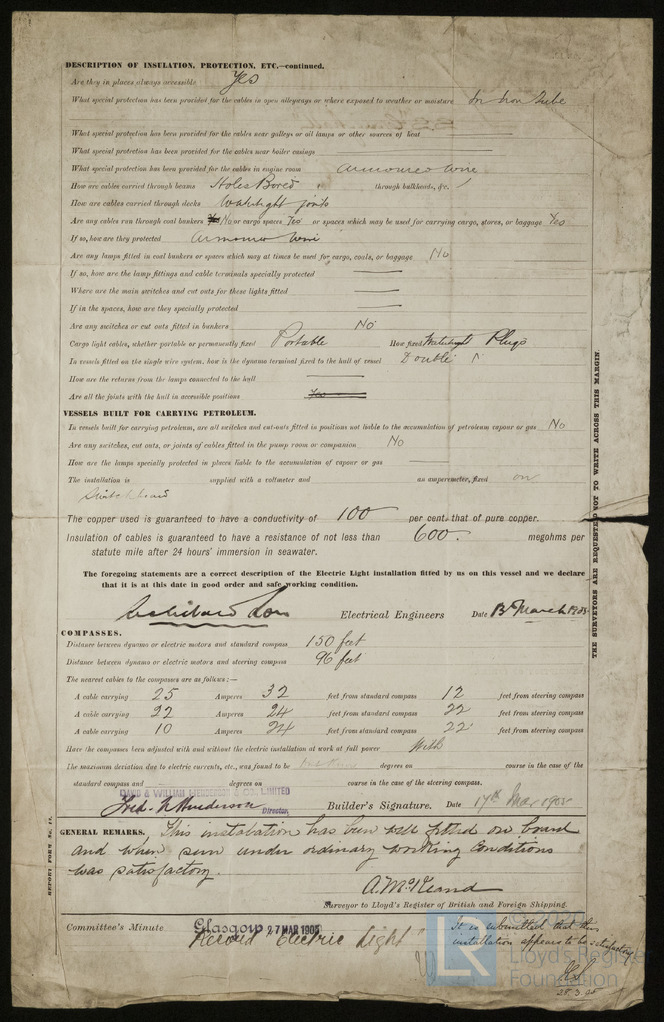 DESCRIPTION OF INSULATION, PROTECTION, ETC.—continued.
Are they in places always accessible Yes
What special protection has been provided for the cables in open alleyways or where exposed to weather or moisture In Iron Tube
What special protection has been provided for the cables near galleys or oil lamps or other sources of heat
What special protection has been provided for the cables near boiler casings
What special protection has been provided for the cables in engine room Armoured wire
How are cables carried through beams Holes Bored through bulkheads, &c.
How are cables carried through decks Watertight joints
Are any cables run through coal bunkers Yes No or cargo spaces Yes or spaces which may be used for carrying cargo, stores, or baggage Yes
If so, how are they protected Armoured Wire
Are any lamps fitted in coal bunkers or spaces which may at times be used for cargo, coals, or baggage No
If so, how are the lamp fittings and cable terminals specially protected
Where are the main switches and cut outs for these lights fitted
If in the spaces, how are they specially protected
Are any switches or cut outs fitted in bunkers No
Cargo light cables, whether portable or permanently fixed Portable How fixed Watertight Plugs
In vessels fitted on the single wire system, how is the dynamo terminal fixed to the hull of vessel Double
How are the returns from the lamps connected to the hull
Are all the joints with the hull in accessible positions Yes
VESSELS BUILT FOR CARRYING PETROLEUM.
In vessels built for carrying petroleum, are all switches and cut-outs fitted in positions not liable to the accumulation of petroleum vapour or gas No
Are any switches, cut outs, or joints of cables fitted in the pump room or companion No
How are the lamps specially protected in places liable to the accumulation of vapour or gas
The installation is supplied with a voltmeter and an amperemeter, fixed on
Switchboard
The copper used is guaranteed to have a conductivity of 100 per cent. that of pure copper.
Insulation of cables is guaranteed to have a resistance of not less than 600 megohms per
statute mile after 24 hours' immersion in seawater.
The foregoing statements are a correct description of the Electric Light installation fitted by us on this vessel and we declare
that it is at this date in good order and safe working condition.
Electrical Engineers Date 13 March 1905
COMPASSES.
Distance between dynamo or electric motors and standard compass 150 feet
Distance between dynamo or electric motors and steering compass 96 feet
The nearest cables to the compasses are as follows:—
A cable carrying 25 Amperes 32 feet from standard compass 12 feet from steering compass
A cable carrying 22 Amperes 24 feet from standard compass 22 feet from steering compass
A cable carrying 10 Amperes 24 feet from standard compass 22 feet from steering compass
Have the compasses been adjusted with and without the electric installation at work at full power With
The maximum deviation due to electric currents, etc., was found to be degrees on course in the case of the
standard compass and degrees on course in the case of the steering compass.
DAVID & WILLIAM HENDERSON & CO. LIMITED
Fred. N. Henderson Director, Builder's Signature. Date 17th Mar 1905
GENERAL REMARKS. This installation has been well fitted on board
and when run under ordinary working conditions
was satisfactory.
A. McKeand
Surveyor to Lloyd's Register of British and Foreign Shipping.
Committee's Minute Glasgow 27 MAR 1905
Record "Electric Light"
It is submitted that this
installation appears to be satisfactory
28.3.05
THE SURVEYORS ARE REQUESTED NOT TO WRITE ACROSS THIS MARGIN.
REPORT FORM No. 11.
LR
Lloyd's Register
Foundation